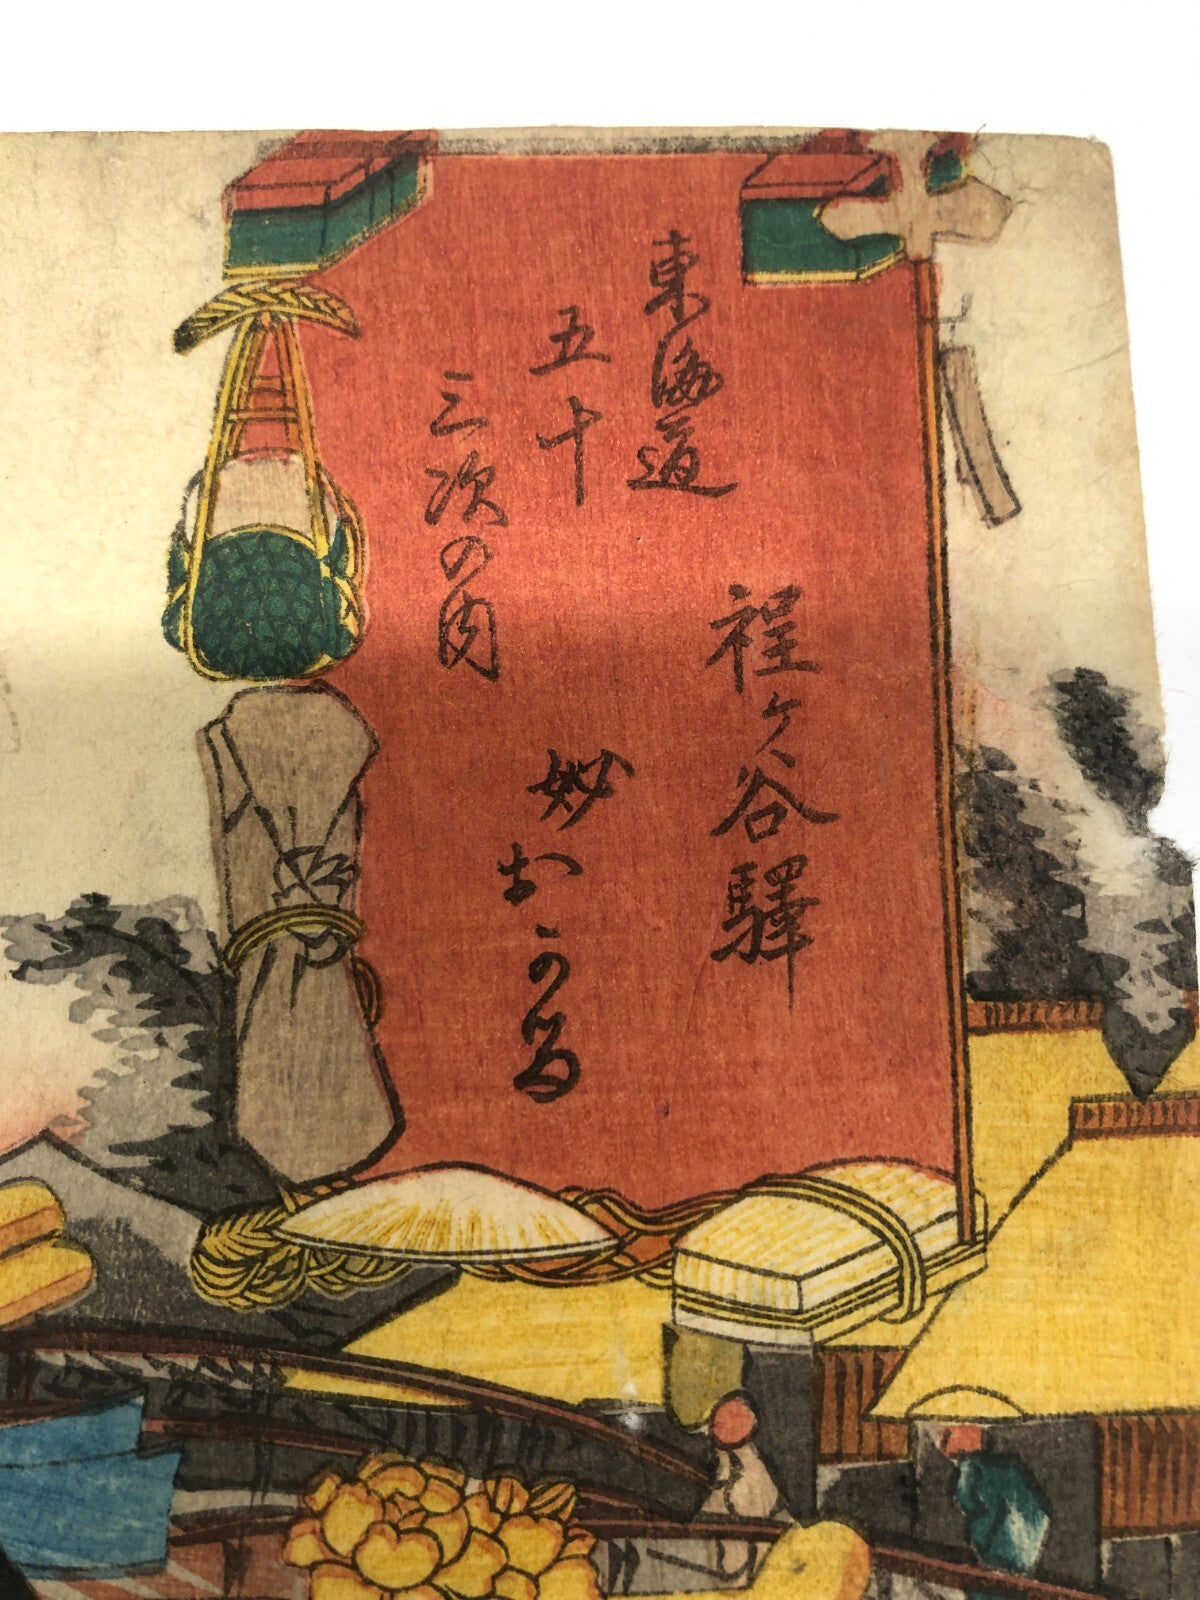 東海道
五十
三次の内
程ヶ谷驛
妙おかる